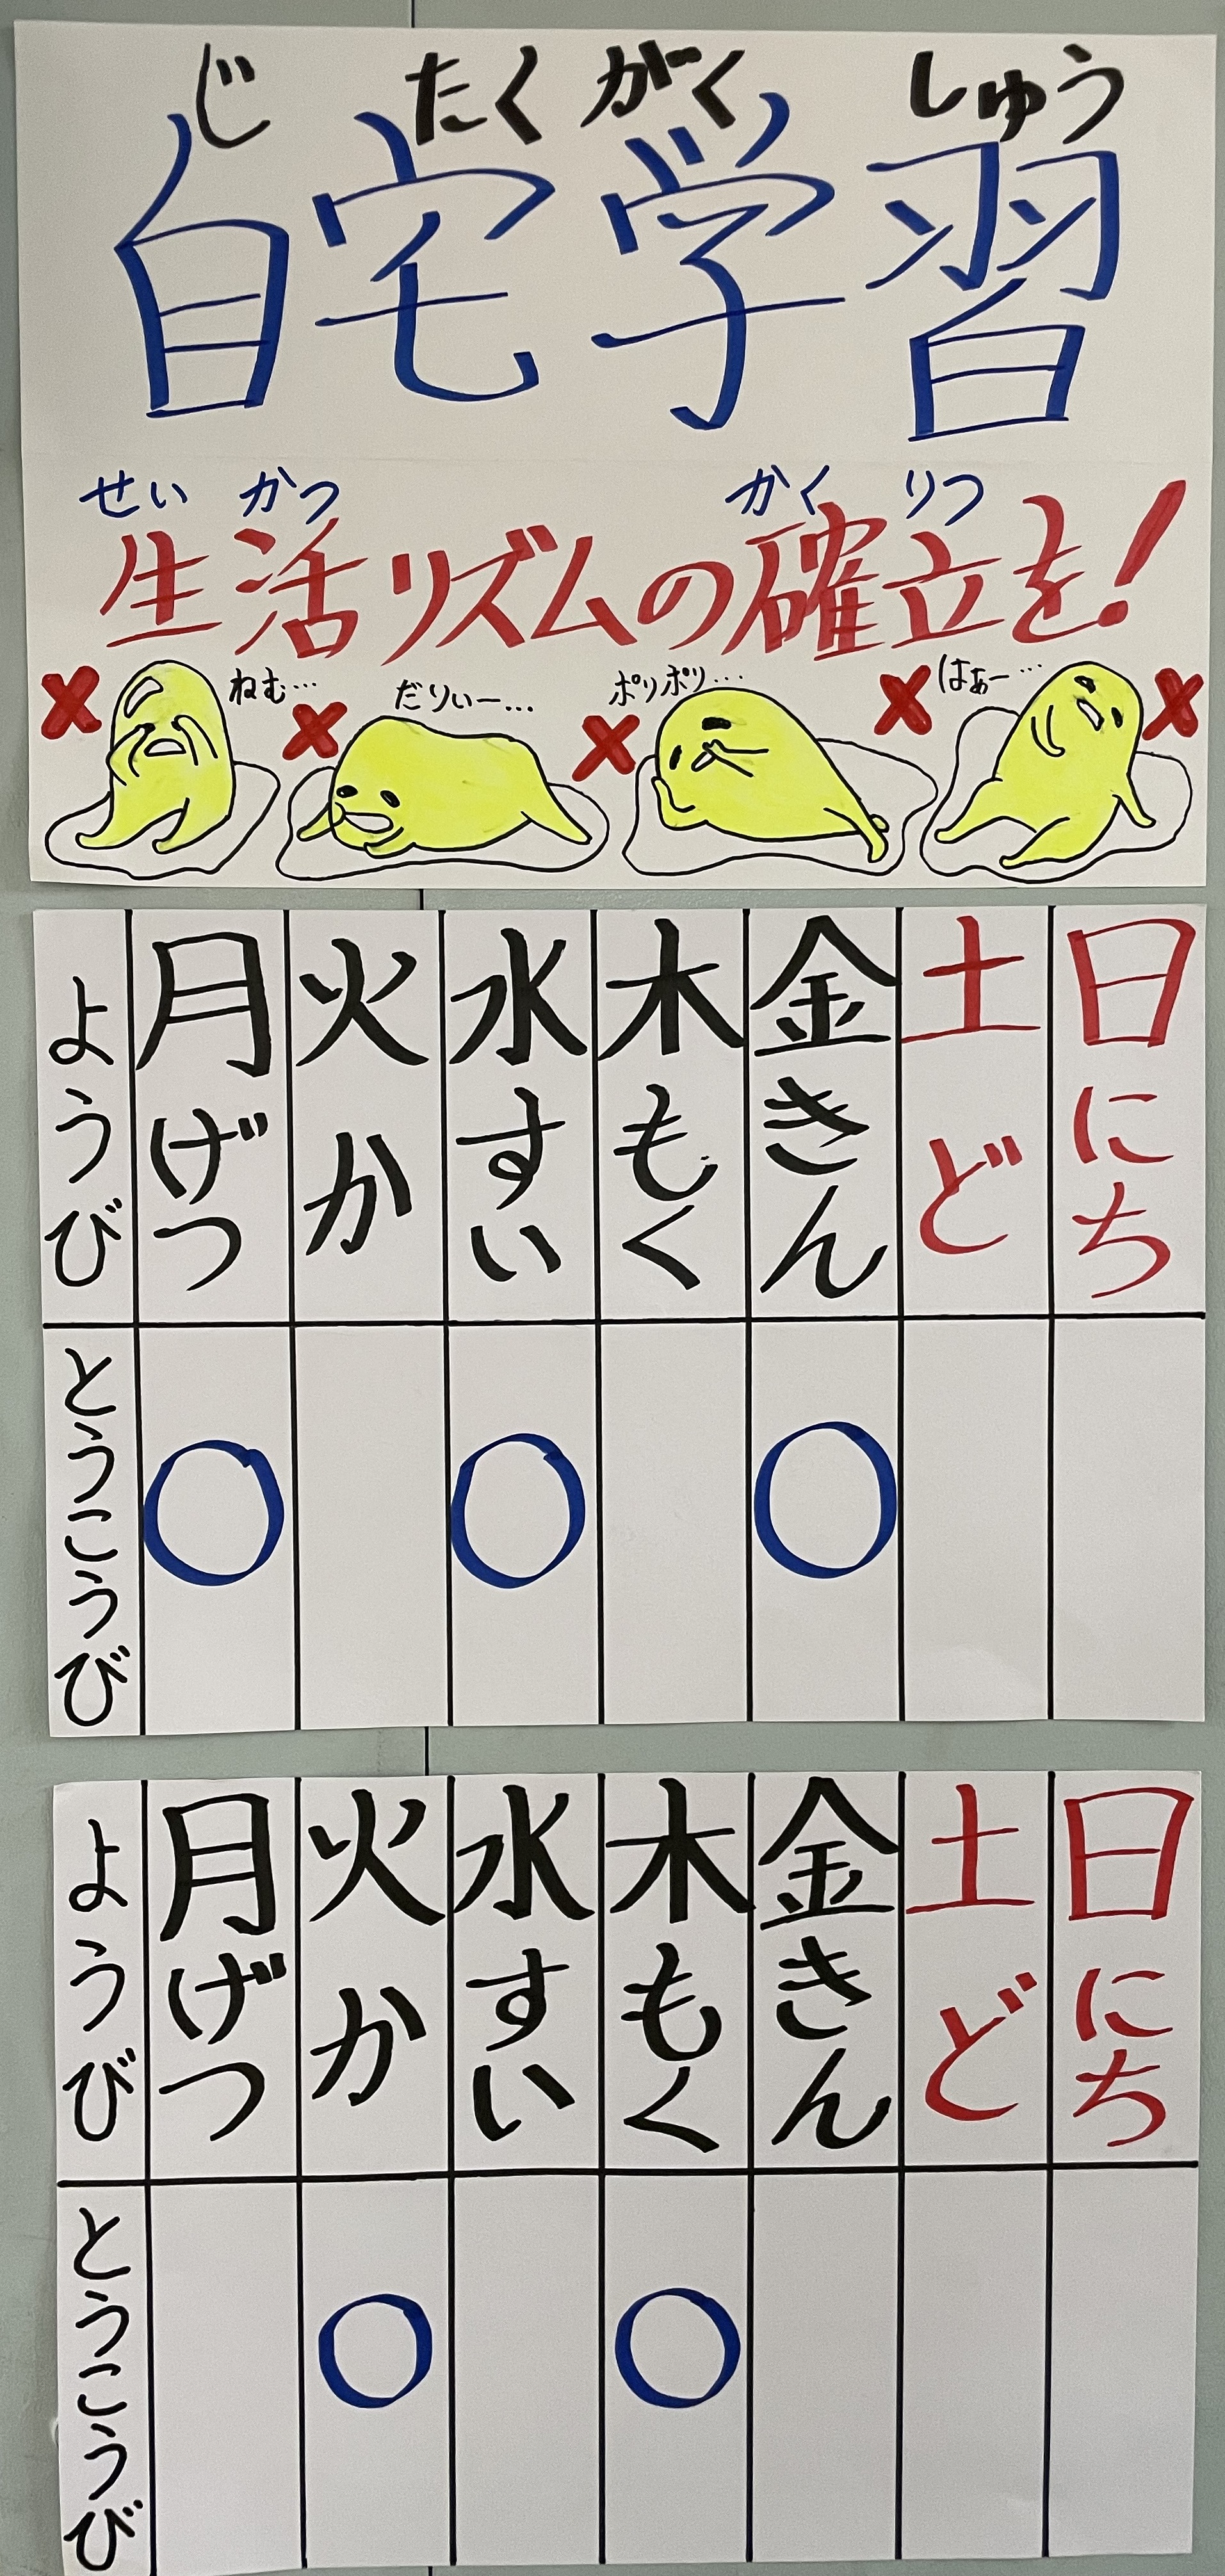 じたくがくしゅう
自宅学習
せいかつ かくりつ
生活リズムの確立を!
ねむ…
だりぃー…
ポリポリ…
はぁー…
ようび 月げつ 火か 水すい 木もく 金きん 土ど 日にち
とうこうび ○ ○ ○
ようび 月げつ 火か 水すい 木もく 金きん 土ど 日にち
とうこうび ○ ○